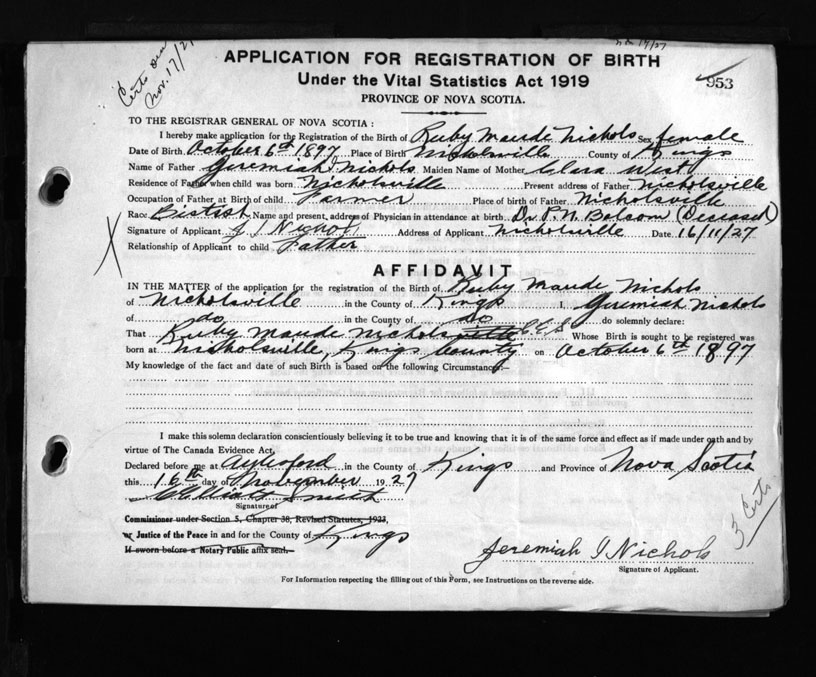 Certs
Nov. 17/27
Nov 17/27
APPLICATION FOR REGISTRATION OF BIRTH
953
Under the Vital Statistics Act 1919
PROVINCE OF NOVA SCOTIA.
TO THE REGISTRAR GENERAL OF NOVA SCOTIA :
I hereby make application for the Registration of the Birth of Ruby Maude Nichols Sex female
Date of Birth October 6th 1897 Place of Birth Nicholsville County of Kings
Name of Father Jeremiah I Nichols Maiden Name of Mother Clara West
Residence of Father when child was born Nicholsville Present address of Father Nicholsville
Occupation of Father at Birth of child Farmer Place of birth of Father Nicholsville
Race British Name and present address of Physician in attendance at birth Dr P. N. Balcom (Deceased)
Signature of Applicant J I Nichols Address of Applicant Nicholsville Date 16/11/27
Relationship of Applicant to child Father
AFFIDAVIT
IN THE MATTER of the application for the registration of the Birth of Ruby Maude Nichols
of Nicholsville in the County of Kings I, Jeremiah Nichols
of do in the County of do do solemnly declare:
That Ruby Maude Nichols C.E.S Whose Birth is sought to be registered was
born at Nicholsville, Kings County on October 6th 1897
My knowledge of the fact and date of such Birth is based on the following Circumstances:
I make this solemn declaration conscientiously believing it to be true and knowing that it is of the same force and effect as if made under oath and by
virtue of The Canada Evidence Act,
Declared before me at Aylesford in the County of Kings and Province of Nova Scotia
this 16th day of November 1927
C Elliott Smith
Signature of
Commissioner under Section 5, Chapter 38, Revised Statutes, 1923,
or Justice of the Peace in and for the County of Kings
If sworn before a Notary Public affix seal.
3 Certs.
Jeremiah I Nichols
Signature of Applicant.
For Information respecting the filling out of this Form, see Instructions on the reverse side.